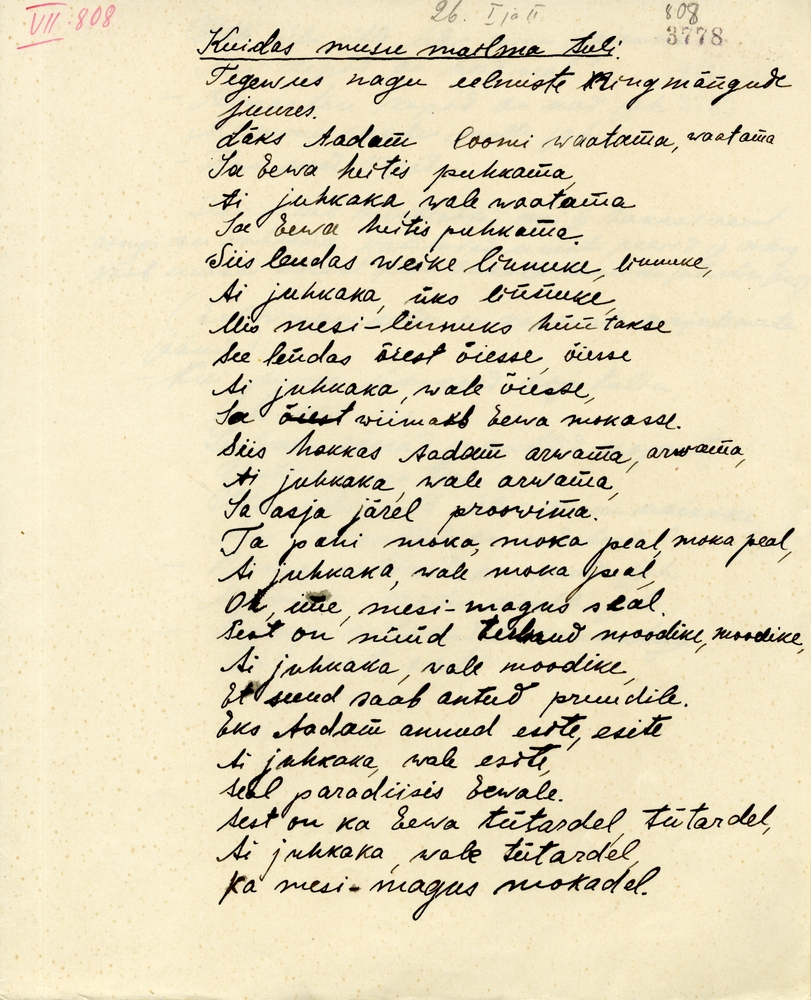 VII 808
26. I ja II
808
3778
Kuidas musu mailma tuli.
Tegewus nagu eelmiste Ringmängude
juures.
Läks Aadam loomi waatama, waatama
Ja Eewa heitis puhkama,
Ai juhkaka, wale waatama
Ja Eewa heitis puhkama.
Siis lendas weike linnuke, linnuke,
Ai juhkaka, üks linnuke,
Mis mesi-linnuks hüütakse
See lendas õiest õiesse, õiesse
Ai juhkaka, wale õiesse,
Ja õiest wiimaks Eewa mokasse.
Siis hakkas Aadam arwama, arwama,
Ai juhkaka, wale arwama,
Ja asja järel proowima.
Ta pani moka, moka peal, moka peal,
Ai juhkaka, wale moka peal,
Oh, ime, mesi-magus seal.
Sest on nüüd moodike, moodike,
Ai juhkaka, wale moodike,
Et suud saab antud pruudile.
Eks Aadam annud esite, esite
Ai juhkaka, wale esite,
Seal paradiisis Eewale.
Sest on ka Eewa tütardel, tütardel,
Ai juhkaka, wale tütardel,
Ka mesi-magus mokadel.